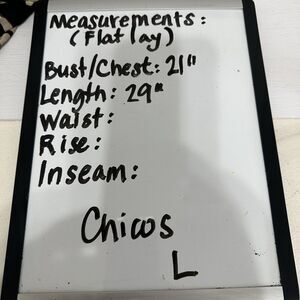 Measurements:
(Flat lay)
Bust/Chest: 21"
Length: 29"
Waist:
Rise:
Inseam:
Chicos
L